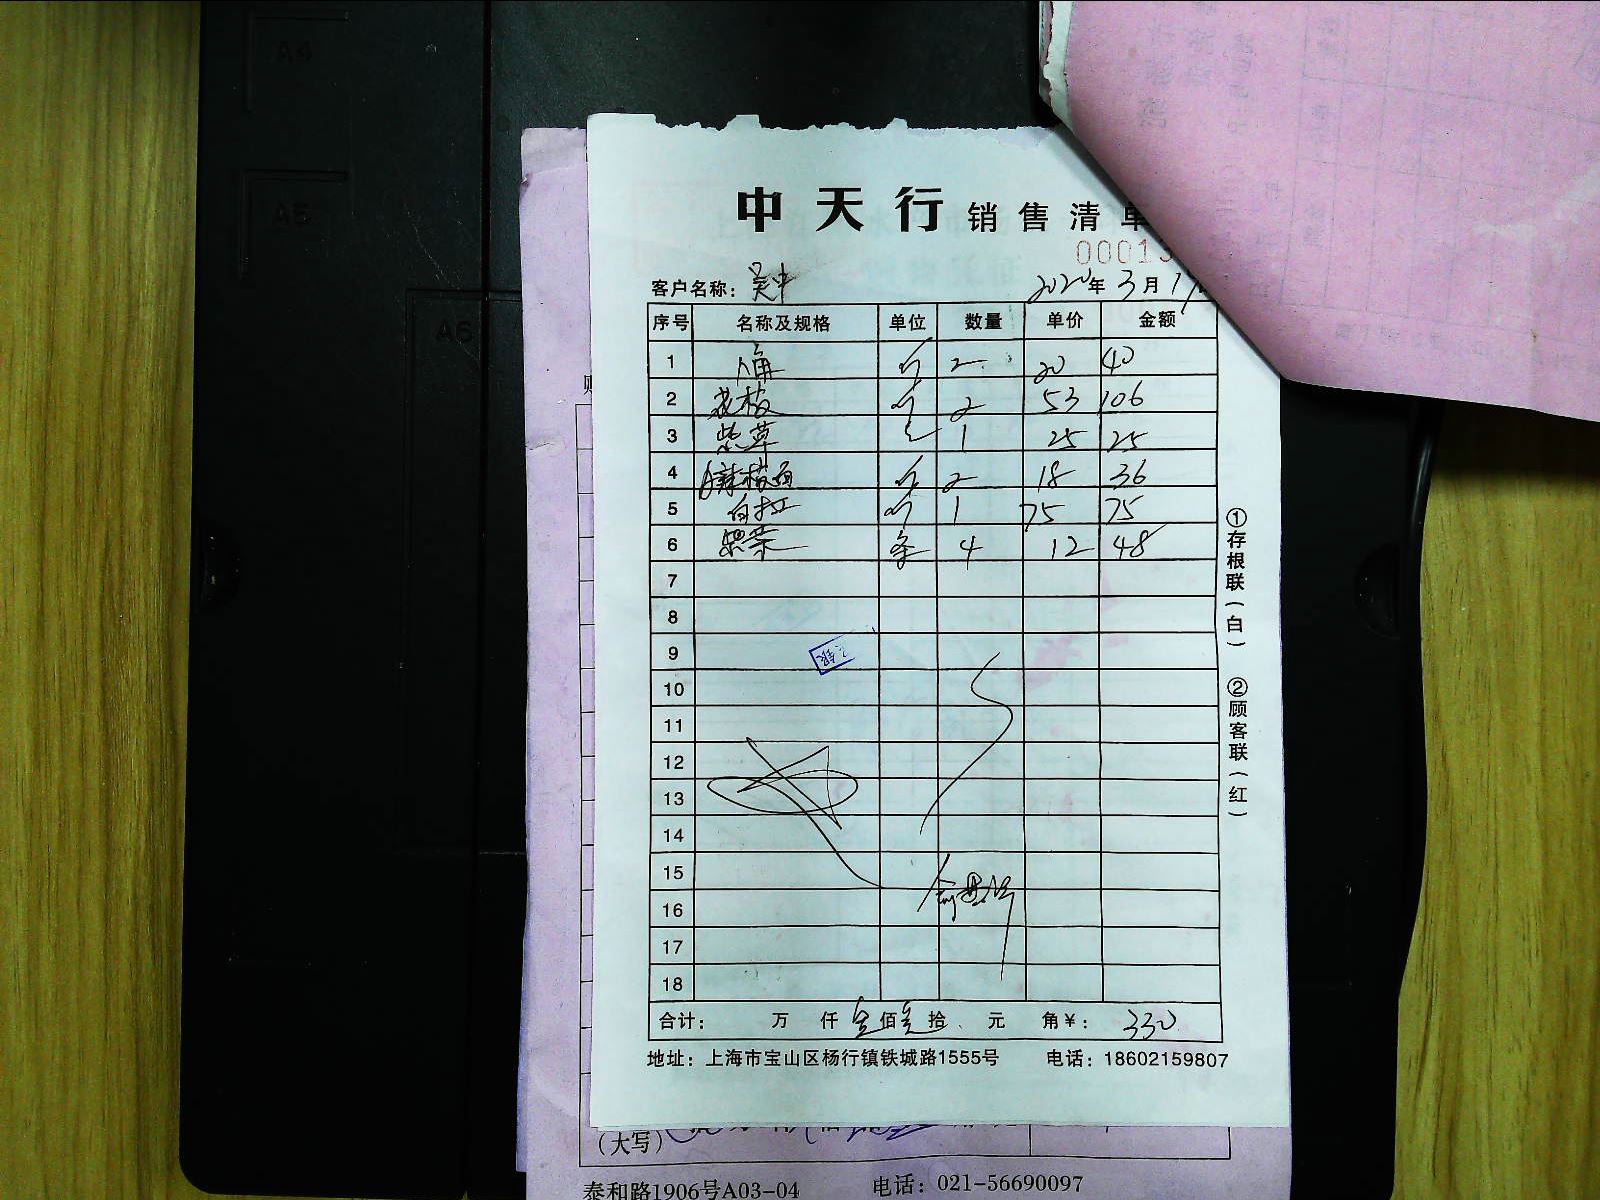 A4
A5
A6
中天行 销售清单
00013
客户名称：吴中 2020年3月17
序号 名称及规格 单位 数量 单价 金额
1 八角 斤 2 20 40
2 花椒 斤 2 53 106
3 紫草 1 25 25
4 斤 2 18 36
5 白扣 斤 1 75 75
6 紫菜 条 4 12 48
7
8
9
10
11
12
13
14
15
16
17
18
合计： 万 仟 叁佰叁拾 元 角￥： 330
地址：上海市宝山区杨行镇铁城路1555号 电话：18602159807
①存根联（白） ②顾客联（红）
（大写）
泰和路1906号A03-04 电话：021-56690097